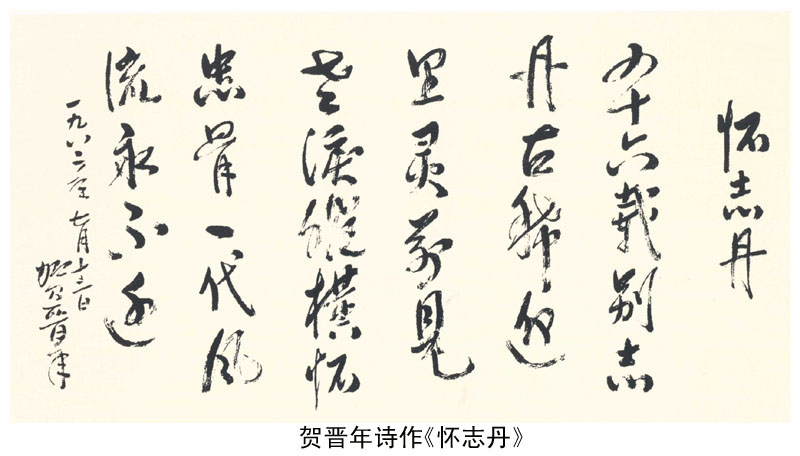 怀志丹
四十六载别志
丹古稀
里灵前见
老淚縱横怀
忠骨一代风
流永不
一九八二年七月十三日
贺晋年
贺晋年诗作《怀志丹》